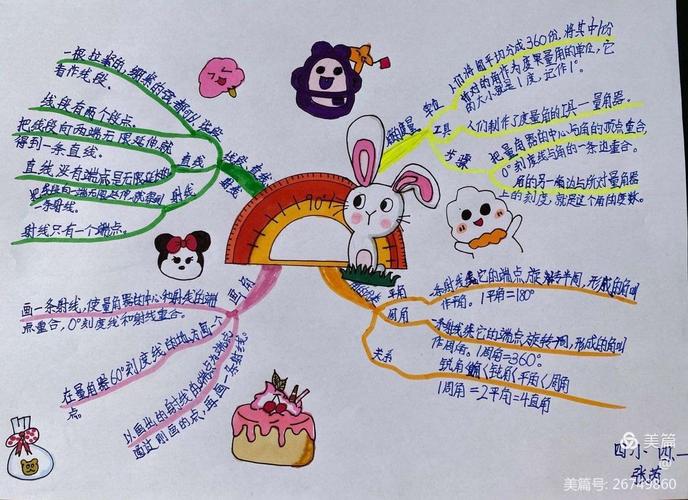 一根拉紧的
看作线段。
线段有两个端点。
把线段向两端无限延伸,就
得到一条直线。
直线没有端点是无限延长的
把线段向一端无限延伸,就得到
一条射线。
射线只有一个端点。
线段
直线
射线
线段 直线
射线
人们将圆平均分成360份,将其中1份
所对的角作为度量角的单位,它
的大小就是1度,记作1°。
人们制作了度量角的工具—量角器。
把量角器的中心与角的顶点重合,
0°刻度线与角的一条边重合。
角的另一条边所对量角器
上的刻度,就是这个角的度数。
单位
工具
步骤
角的度量
90°
画角
画一条射线,使量角器的中心和射线的端
点重合,0°刻度线和射线重合。
在量角器60°刻度线的地方画一个
点。
以画出的射线的端点为端点
通过刚画的点,再画一条射线。
平角
周角
关系
一条射线绕它的端点,旋转半周,形成的角叫
作平角。1平角=180°
一条射线绕它的端点,旋转一周,形成的角叫
作周角。1周角=360°。
锐角<直角<钝角<平角<周角
1周角=2平角=4直角
四小 四·一
张芮
美篇
美篇号: 26749860